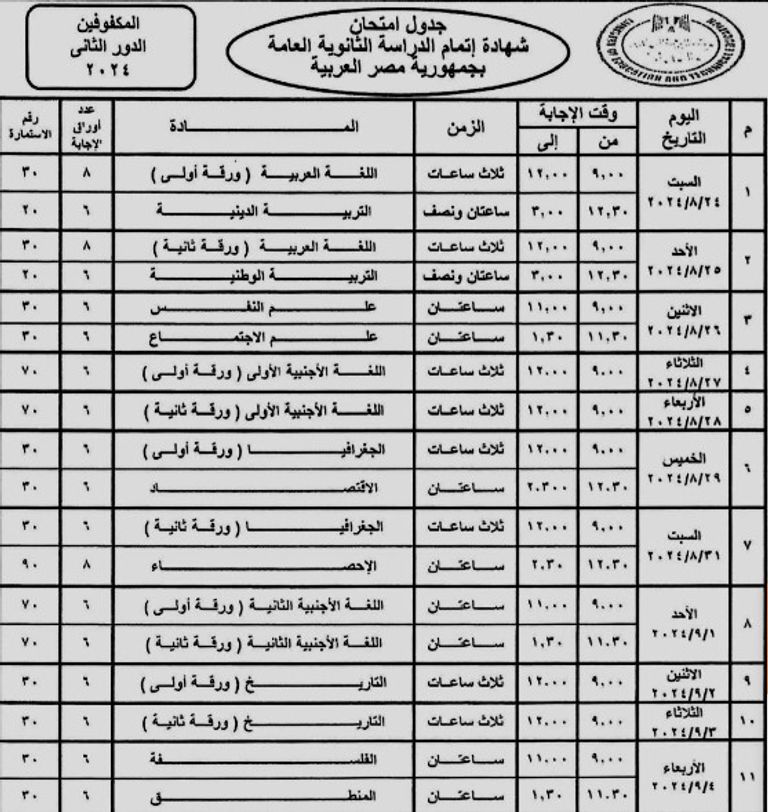 جدول امتحان
شهادة إتمام الدراسة الثانوية العامة
بجمهورية مصر العربية
المكفوفين
الدور الثانى
٢٠٢٤
م | اليوم التاريخ | وقت الإجابة من | إلى | الزمن | المـــادة | عدد أوراق الإجابة | رقم الاستمارة
١ | السبت ٢٠٢٤/٨/٢٤ | ٩,٠٠ | ١٢,٠٠ | ثلاث ساعات | اللغــة العربيــة ( ورقـة أولـى ) | ٨ | ٣٠
١٢,٣٠ | ٣,٠٠ | ساعتان ونصف | التربيــة الدينيــة | ٦ | ٢٠
٢ | الأحد ٢٠٢٤/٨/٢٥ | ٩,٠٠ | ١٢,٠٠ | ثلاث ساعات | اللغــة العربيــة ( ورقـة ثانيـة ) | ٨ | ٣٠
١٢,٣٠ | ٣,٠٠ | ساعتان ونصف | التربيــة الوطنيــة | ٦ | ٢٠
٣ | الاثنين ٢٠٢٤/٨/٢٦ | ٩,٠٠ | ١١,٠٠ | ســاعتــان | علــم النفــس | ٦ | ٣٠
١١,٣٠ | ١,٣٠ | ســاعتــان | علــم الاجتمــاع | ٦ | ٣٠
٤ | الثلاثاء ٢٠٢٤/٨/٢٧ | ٩,٠٠ | ١٢,٠٠ | ثلاث ساعات | اللغــة الأجنبية الأولى ( ورقـة أولـى ) | ٦ | ٧٠
٥ | الأربعاء ٢٠٢٤/٨/٢٨ | ٩,٠٠ | ١٢,٠٠ | ثلاث ساعات | اللغــة الأجنبية الأولى ( ورقـة ثانية ) | ٦ | ٧٠
٦ | الخميس ٢٠٢٤/٨/٢٩ | ٩,٠٠ | ١٢,٠٠ | ثلاث ساعات | الجغرافيــا ( ورقـة أولـى ) | ٦ | ٣٠
١٢,٣٠ | ٢,٣٠٠ | ســاعتــان | الاقتصــاد | ٦ | ٣٠
٧ | السبت ٢٠٢٤/٨/٣١ | ٩,٠٠ | ١٢,٠٠ | ثلاث ساعات | الجغرافيــا ( ورقـة ثانية ) | ٦ | ٣٠
١٢,٣٠ | ٢,٣٠ | ســاعتــان | الإحصــاء | ٨ | ٩٠
٨ | الأحد ٢٠٢٤/٩/١ | ٩,٠٠ | ١١,٠٠ | ســاعتــان | اللغــة الأجنبية الثانية ( ورقـة أولـى ) | ٦ | ٧٠
١١,٣٠ | ١,٣٠ | ســاعتــان | اللغــة الأجنبية الثانية ( ورقـة ثانية ) | ٦ | ٧٠
٩ | الاثنين ٢٠٢٤/٩/٢ | ٩,٠٠ | ١٢,٠٠ | ثلاث ساعات | التاريــخ ( ورقـة أولـى ) | ٦ | ٣٠
١٠ | الثلاثاء ٢٠٢٤/٩/٣ | ٩,٠٠ | ١٢,٠٠ | ثلاث ساعات | التاريــخ ( ورقـة ثانية ) | ٦ | ٣٠
١١ | الأربعاء ٢٠٢٤/٩/٤ | ٩,٠٠ | ١١,٠٠ | ســاعتــان | الفلســفة | ٦ | ٣٠
١١,٣٠ | ١,٣٠ | ســاعتــان | المنطــق | ٦ | ٣٠